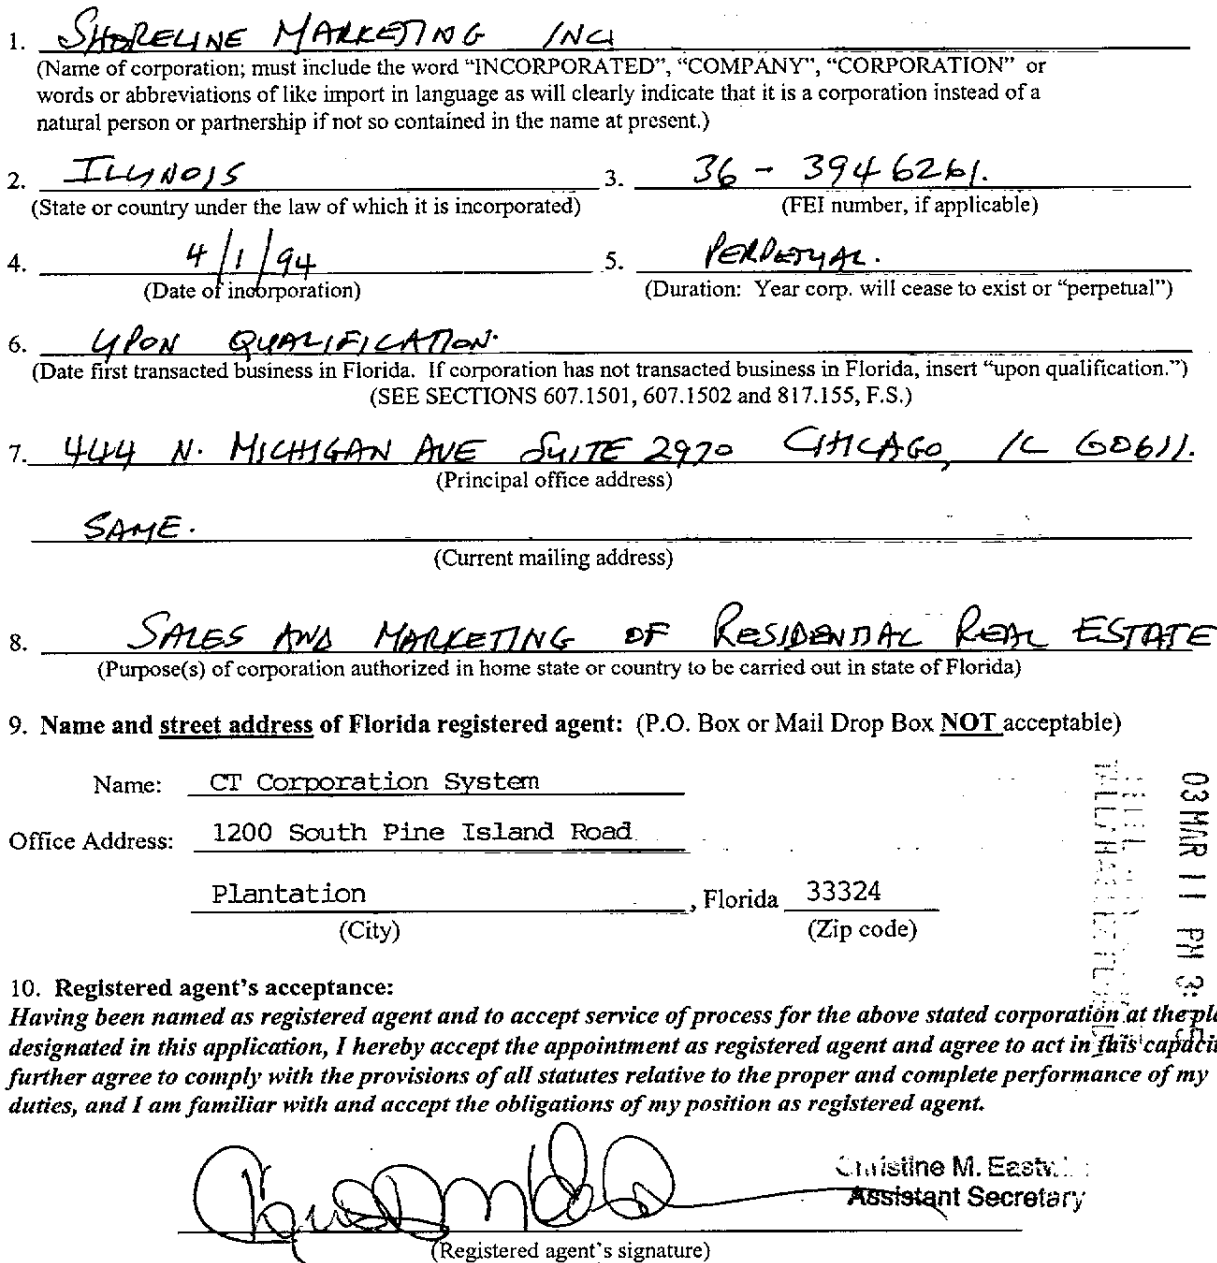 1. SHORELINE MARKETING INC
(Name of corporation; must include the word “INCORPORATED”, “COMPANY”, “CORPORATION” or
words or abbreviations of like import in language as will clearly indicate that it is a corporation instead of a
natural person or partnership if not so contained in the name at present.)
2. ILLINOIS 3. 36 - 3946261.
(State or country under the law of which it is incorporated) (FEI number, if applicable)
4. 4/1/94 5. PERPETUAL.
(Date of incorporation) (Duration: Year corp. will cease to exist or “perpetual”)
6. UPON QUALIFICATION.
(Date first transacted business in Florida. If corporation has not transacted business in Florida, insert “upon qualification.”)
(SEE SECTIONS 607.1501, 607.1502 and 817.155, F.S.)
7. 444 N. MICHIGAN AVE SUITE 2970 CHICAGO, IL 60611.
(Principal office address)
SAME.
(Current mailing address)
8. SALES AND MARKETING OF RESIDENTIAL REAL ESTATE
(Purpose(s) of corporation authorized in home state or country to be carried out in state of Florida)
9. Name and street address of Florida registered agent: (P.O. Box or Mail Drop Box NOT acceptable)
Name: CT Corporation System
Office Address: 1200 South Pine Island Road
Plantation, Florida 33324
(City) (Zip code)
03 MAR 11 PM 3:
10. Registered agent’s acceptance:
Having been named as registered agent and to accept service of process for the above stated corporation at the
designated in this application, I hereby accept the appointment as registered agent and agree to act in this
further agree to comply with the provisions of all statutes relative to the proper and complete performance of my
duties, and I am familiar with and accept the obligations of my position as registered agent.
Christine M.
Assistant Secretary
(Registered agent’s signature)